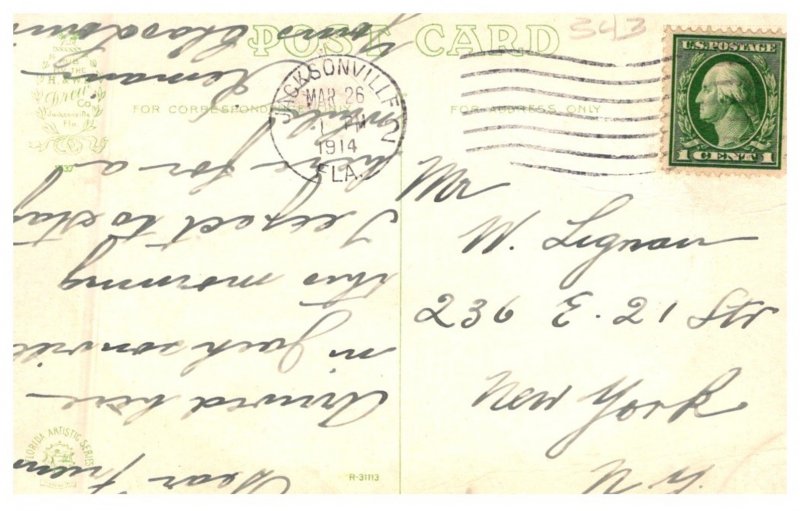 POST CARD
343
U.S. POSTAGE
1 CENT 1
JACKSONVILLE
MAR 26
PM
1914
FLA.
FOR CORRESPONDENCE ONLY
FOR ADDRESS ONLY
THE
H. & W. B.
Drew
Co.
Jacksonville
Fla.
Mr
W. Lignan
236 E. 21 Str
New York
N.Y.
Dear Frien
Arrived here
in Jacksonvill
this morning
I expect to stay
here for a
while
Remain
Yours
FLORIDA ARTISTIC SERIES
R-31113